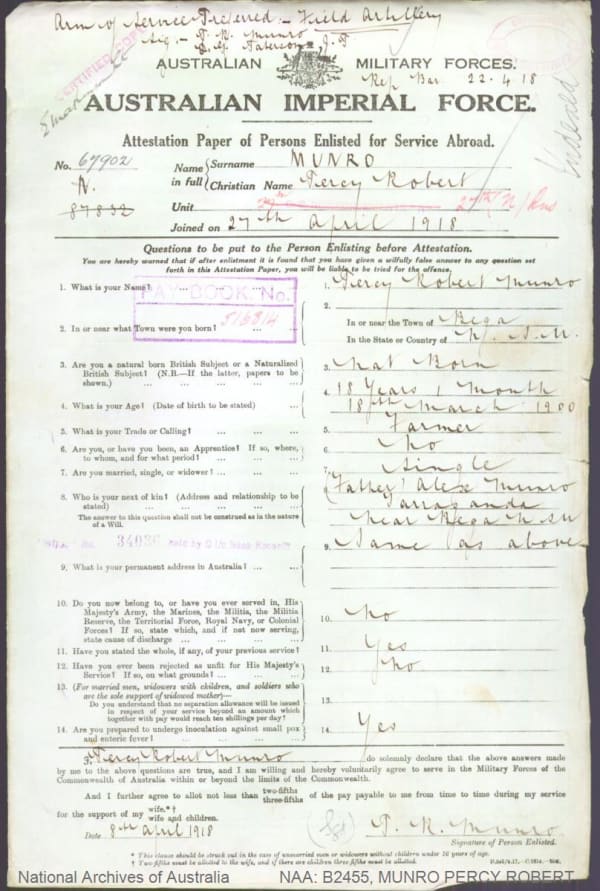 Arm of Service Preferred. - Field Artillery
Sig. - P. R. Munro
J. P.
CERTIFIED COPY
AUSTRALIAN MILITARY FORCES.
22.4.18
AUSTRALIAN IMPERIAL FORCE.
Indexed
Attestation Paper of Persons Enlisted for Service Abroad.
No. 67902
N.
87832
Name in full
Surname MUNRO
Christian Name Percy Robert
Unit
Joined on 27th April 1918
Questions to be put to the Person Enlisting before Attestation.
You are hereby warned that if after enlistment it is found that you have given a wilfully false answer to any question set
forth in this Attestation Paper, you will be liable to be tried for the offence.
1. What is your Name? ... ... ...
1. Percy Robert Munro
PAY BOOK. No.
2. In or near what Town were you born? ... ...
2.
In or near the Town of Bega
In the State or Country of N.S.W.
3. Are you a natural born British Subject or a Naturalized
British Subject? (N.B.—If the latter, papers to be
shown.) ... ... ... ...
3. Nat Born
4. What is your Age? (Date of birth to be stated) ...
4. 18 Years 1 Month
18th March 1900
5. What is your Trade or Calling? ... ... ...
5. Farmer
6. Are you, or have you been, an Apprentice? If so, where,
to whom, and for what period? ... ... ...
6. No
7. Are you married, single, or widower? ... ...
7. Single
8. Who is your next of kin? (Address and relationship to be
stated) ... ... ... ...
The answer to this question shall not be construed as in the nature
of a Will.
8. (Father) Alex Munro
Tarraganda
near Bega N.S.W
34036
9. What is your permanent address in Australia? ... ...
9. Same as above
10. Do you now belong to, or have you ever served in, His
Majesty's Army, the Marines, the Militia, the Militia
Reserve, the Territorial Force, Royal Navy, or Colonial
Forces? If so, state which, and if not now serving,
state cause of discharge ... ... ...
10. No
11. Have you stated the whole, if any, of your previous service?
11. Yes
12. Have you ever been rejected as unfit for His Majesty's
Service? If so, on what grounds? ... ...
12. No
13. (For married men, widowers with children, and soldiers who
are the sole support of widowed mother)—
Do you understand that no separation allowance will be issued
in respect of your service beyond an amount which
together with pay would reach ten shillings per day?
13.
14. Are you prepared to undergo inoculation against small pox
and enteric fever? ... ... ...
14. Yes
I, Percy Robert Munro do solemnly declare that the above answers made
by me to the above questions are true, and I am willing and hereby voluntarily agree to serve in the Military Forces of the
Commonwealth of Australia within or beyond the limits of the Commonwealth.
And I further agree to allot not less than two-fifths three-fifths of the pay payable to me from time to time during my service
for the support of my wife.*†
wife and children.
Date 8th April 1918
P. R. Munro
Signature of Person Enlisted.
* This clause should be struck out in the case of unmarried men or widowers without children under 16 years of age.
† Two fifths must be allotted to the wife, and if there are children three fifths must be allotted.
National Archives of Australia
NAA: B2455, MUNRO PERCY ROBERT